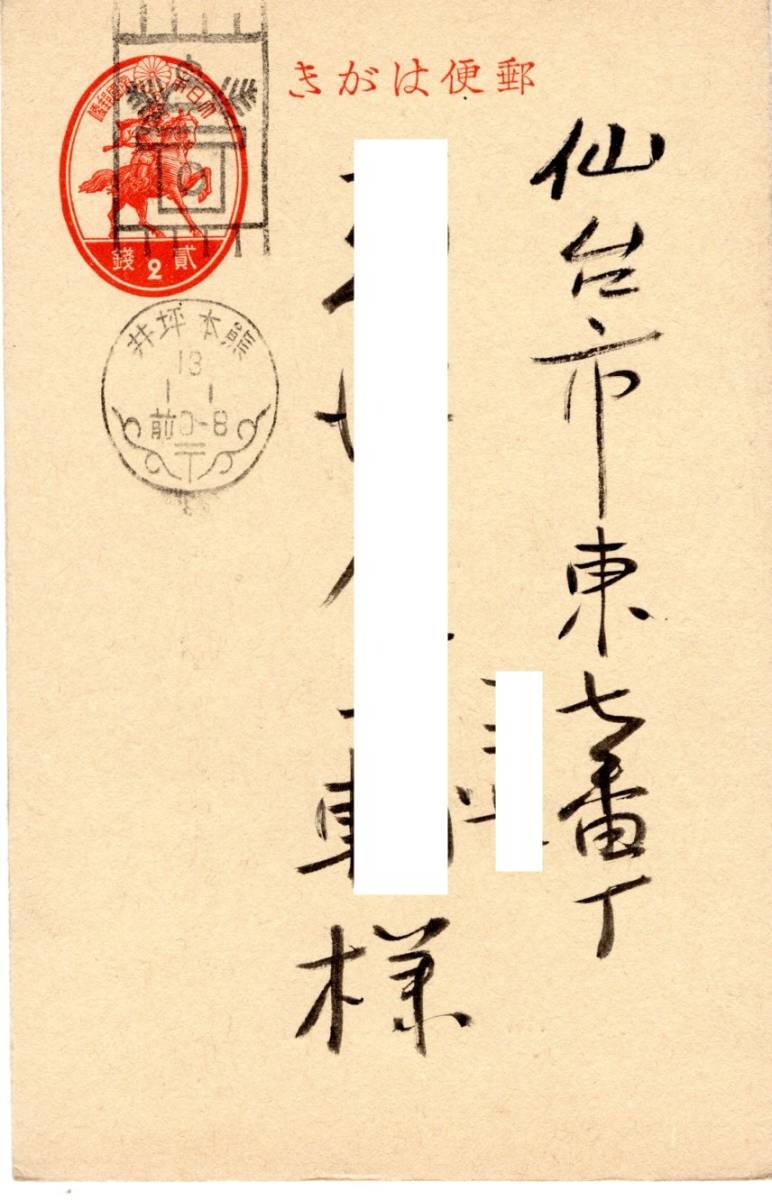 きがは便郵
大日本帝國郵便
錢 2 貳
井坪本熊
13
1 1
前0-8
〒
仙台市東七番丁
様